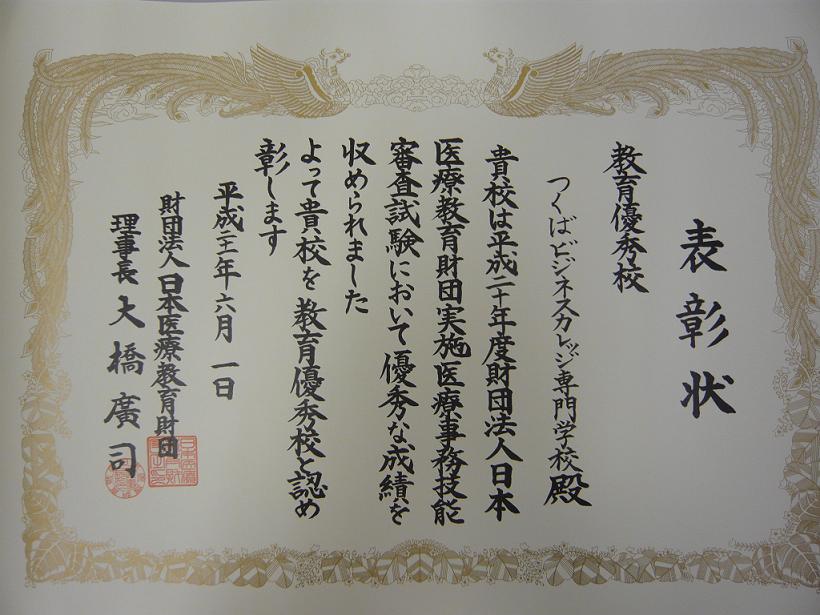 表彰状
教育優秀校
つくばビジネスカレッジ専門学校殿
貴校は平成二十年度財団法人日本
医療教育財団実施医療事務技能
審査試験において優秀な成績を
収められました
よって貴校を教育優秀校と認め
彰します
平成二十一年六月一日
財団法人日本医療教育財団
理事長大橋廣司